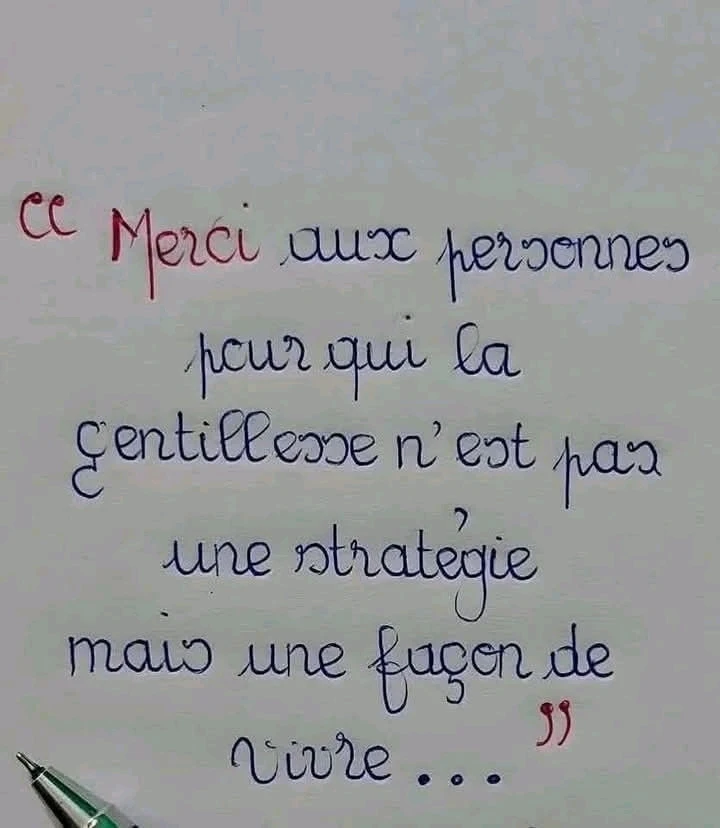 “ Merci aux personnes
pour qui la
gentillesse n'est pas
une stratégie
mais une façon de
vivre... ”